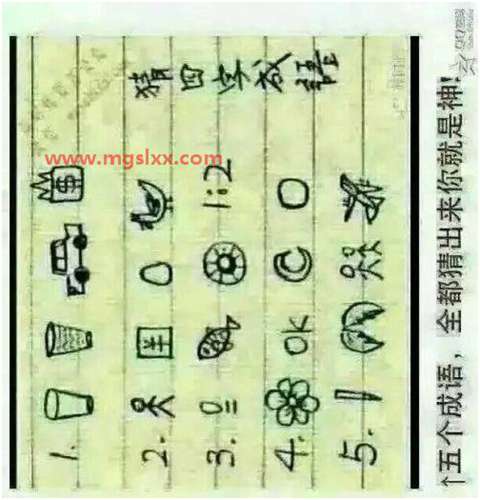 猜四字成語
www.mgslxx.com
1. $
2.
3. 1:2
4. OK C
5.
↑五个成语，全都猜出来你就是神!